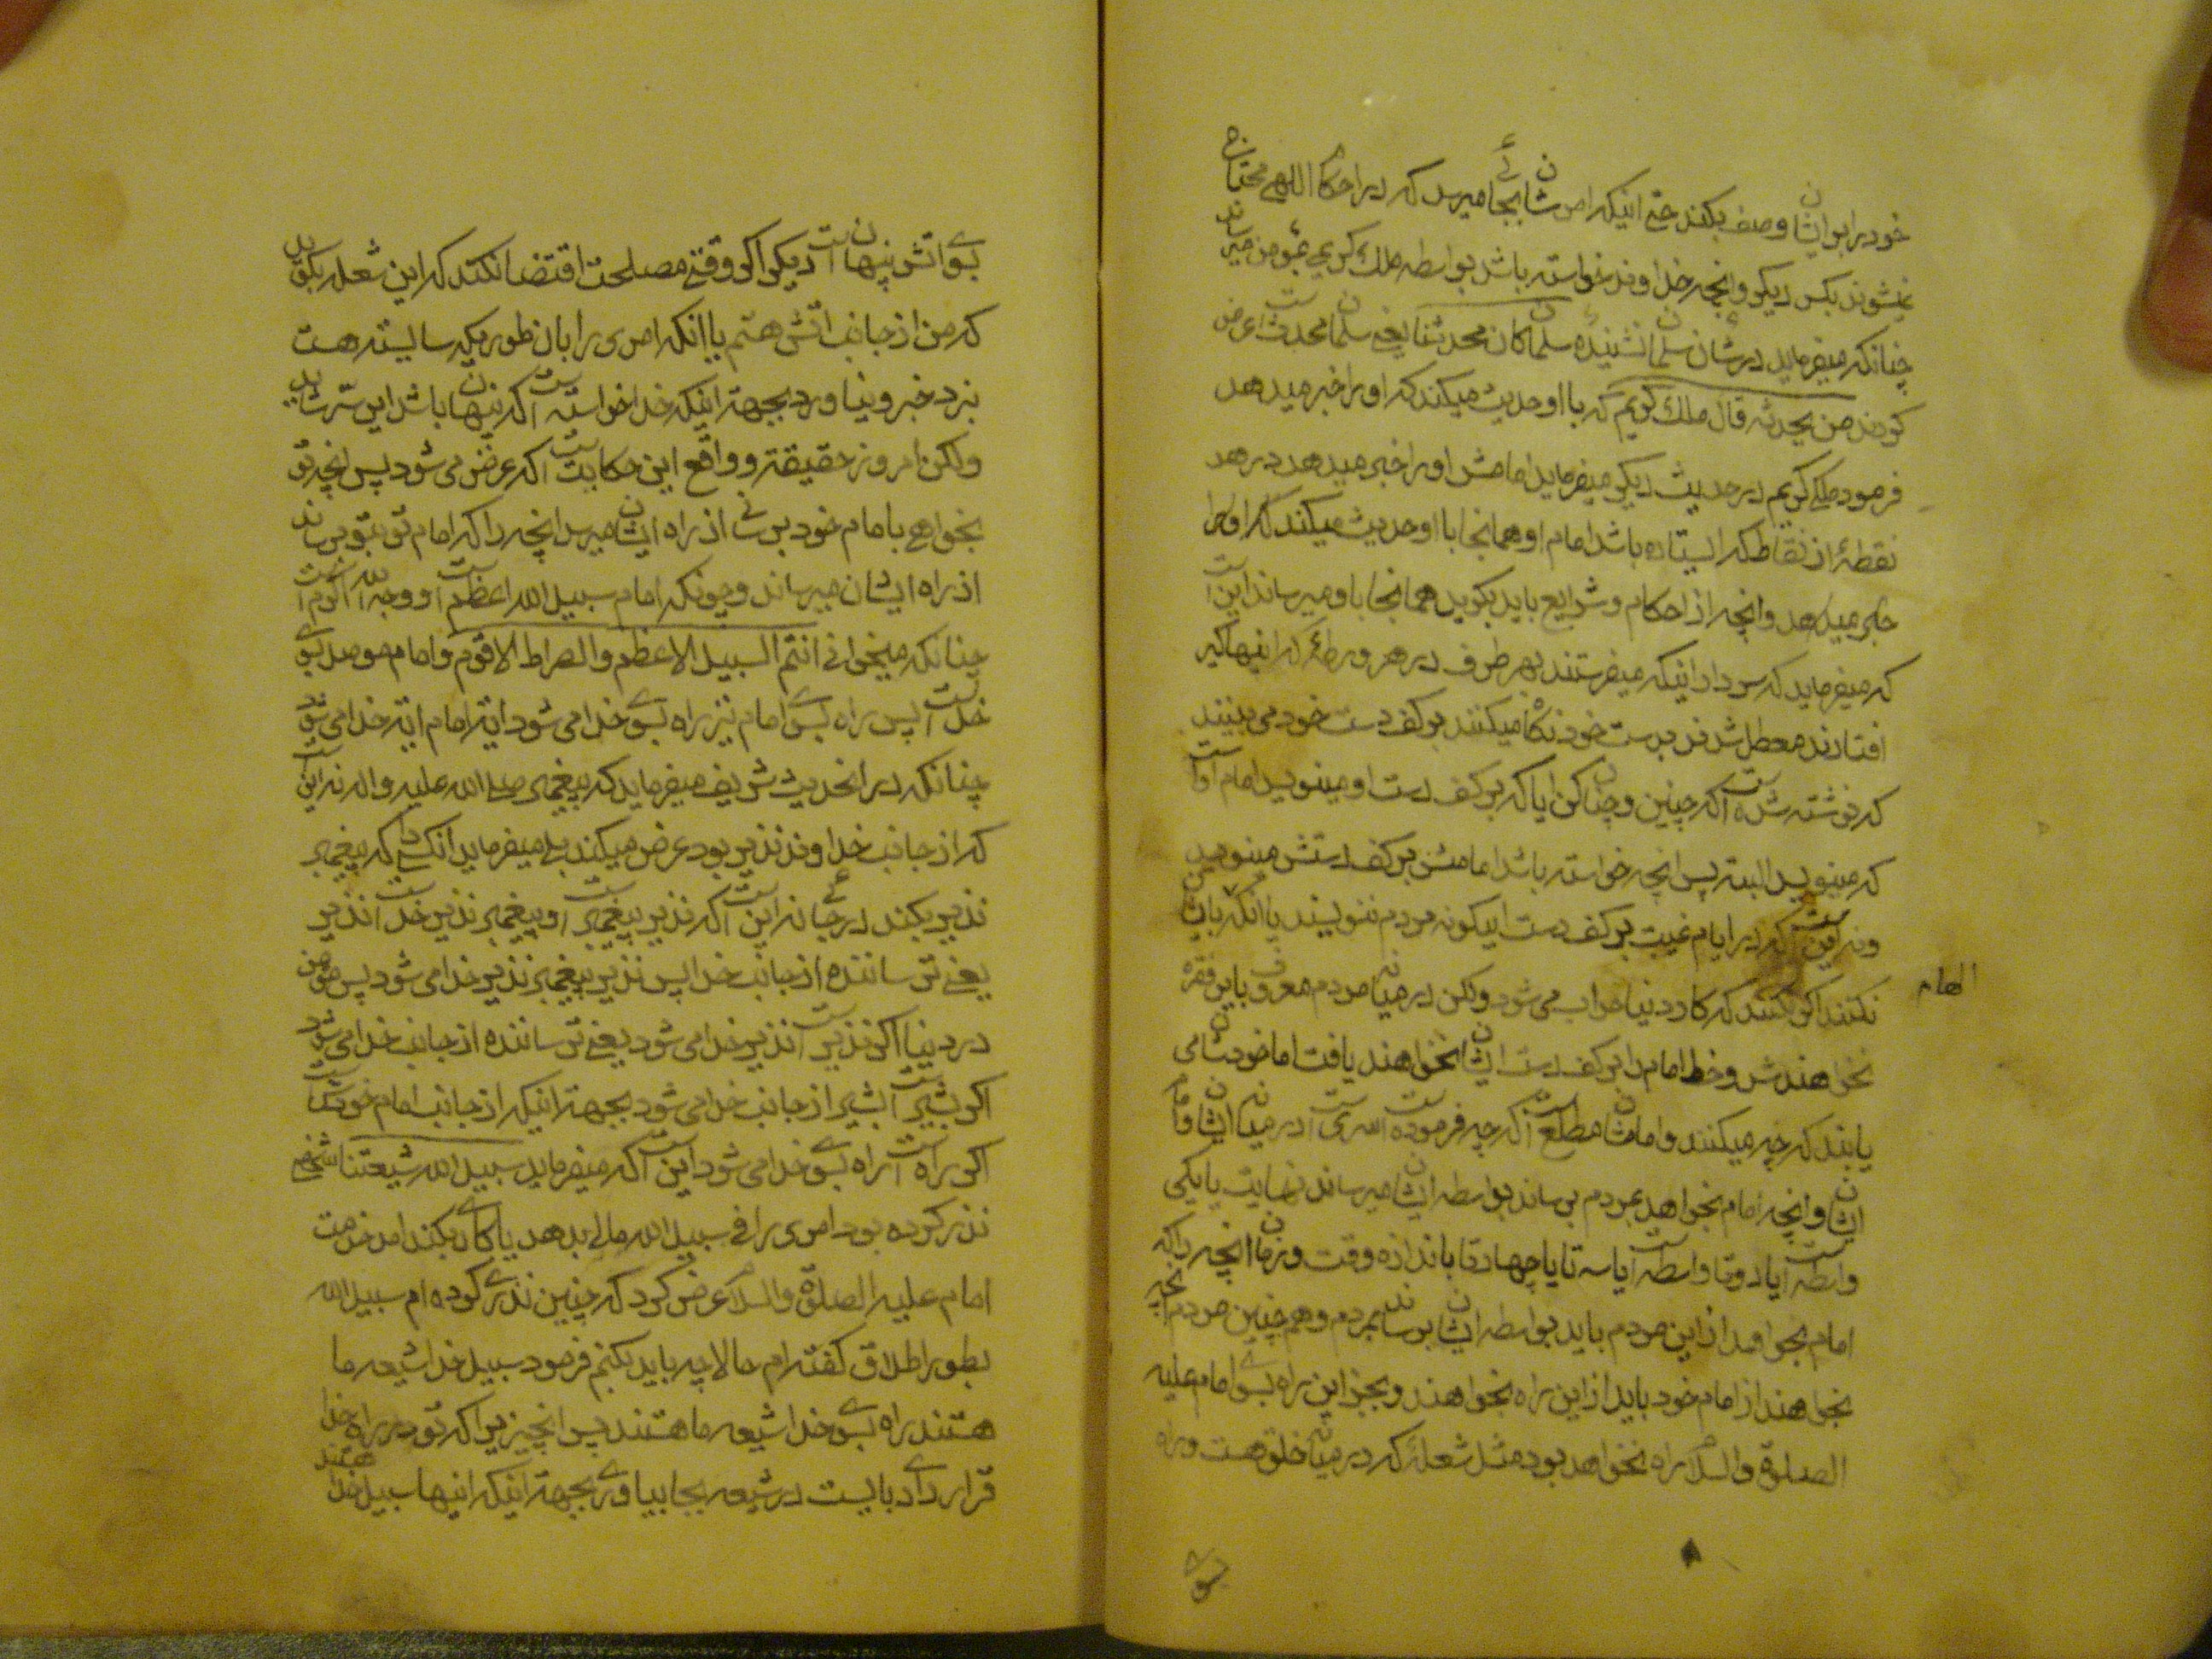 خود را برای ایشان وصف بکنند حتی اینکه امر شان بجائی میرسد که در احکام اللهی محتاج
نمیشوند بکس دیگر و انچه خداوند خواسته باشد بواسطه ملك کریمی بمؤمن میرساند
چنانکه میفرماید در شان سلمان شنیدهٔ سلمان کان محدثا یعنی سلمان محدث است عرض
کردند من یحدثه قال ملك کریم که با او حدیث میکند که او را خبر میدهد
فرمود ملکی کریم در حدیث دیگر میفرماید امامش او را خبر میدهد در هر
نقطهٔ از نقاط که ایستاده باشد امام او همانجا با او حدیث میکند که او را
خبر میدهد و انچه از احکام و شرایع باید بگوید همانجا باو میرساند این است
که میفرماید که سرداران اینکه میفرستند بهر طرف در هر ورطهٔ که اینها گیر
افتادند معطل شدند بدست خود نگاه میکنند بر کف دست خود می بینند
که نوشته شده است که چنین و چنان کن ایا که بر کف دست او مینویسد امام است
که مینویسد البته پس انچه خواسته باشد امامش بر کف دستش مینویسد
و نه این است که در ایام غیبت بر کف دست اینگونه مردم ننویسند یا انکه بایشان الهام
نکنند اگر نکنند که کار دنیا خراب می شود ولکن در میانه مردم معروف باین فقره
نخواهند شد و خط امام را بر کف دست ایشان نخواهند یافت اما خودشان می
یابند که چه میکنند و امامشان مطلع است که چه فرموده است سری است در میانه ایشان و امام
ایشان و انچه امام بخواهد بمردم برساند بواسطه ایشان میرساند نهایت یا یکی
واسطه است یا دوتا واسطه است یا سه تا یا چهارتا باندازه وقت و زمان انچه را که
امام بخواهد از این مردم باید بواسطه ایشان برساند بمردم و هم چنین مردم انچه
بخواهند از امام خود باید از این راه بخواهند و بجز این راه بسوی امام علیه
الصلوة والسلام راه نخواهد بود مثل شعلهٔ که در میانه خلق هست و راه
بسوی
بسوی اتش پنهان است دیگر اگر وقتی مصلحت اقتضا نکند که این شعله بگوید
که من از جانب اتش هستم یا انکه امری را بان طوریکه سالیسته هست
نزد خبر و نیاورد بجهة اینکه خدا خواسته است که پنهان باشد این سرّ شاید
ولکن امروز حقیقة و واقع این حکایت است که عرض می شود پس انچه تو
بخواهی بامام خود برسانی از راه ایشان میرسد انچه را که امام تو بتو برساند
از راه ایشان میرساند و چونکه امام سبیل الله اعظم است و وجه الله اکرم است
چنانکه میخوانی انتم السبیل الاعظم والصراط الاقوم و امام موصل بسوی
خدا است پس راه بسوی امام نیز راه بسوی خدا می شود ایة امام ایة خدا می شود
چنانکه در انحدیث شریف میفرماید که پیغمبر صلی الله علیه واله نه این است
که از جانب خداوند نذیر بود عرض میکند بلی میفرماید انکسی را که پیغمبر
نذیر بکند در جائی نه این است که نذیر پیغمبر است و پیغمبر نذیر خدا است نذیر
یعنی ترساننده از جانب خدا پس نذیر پیغمبر نذیر خدا می شود پس مؤمن
در دنیا اگر نذیر است نذیر خدا می شود یعنی ترساننده از جانب خدا می شود
اگر بشیر است بشیر از جانب خدا می شود بجهة اینکه از جانب امام خود است
اگر راه است راه بسوی خدا می شود این است که میفرماید سبیل الله شیعتنا شخصی
نذر کرده بود امری را فی سبیل الله مالی بدهد یا کاری بکند امد خدمت
امام علیه الصلوة والسلام عرض کرد که چنین نذری کرده ام سبیل الله
بطور اطلاق گفته ام حالا چه باید بکنم فرمود سبیل خدا شیعه ما
هستند راه بسوی خدا شیعه ما هستند پس انچیزیرا که تو در راه خدا
قرار دادی بایست در شیعه بجا بیاوری بجهة اینکه اینها سبیل خدا هستند